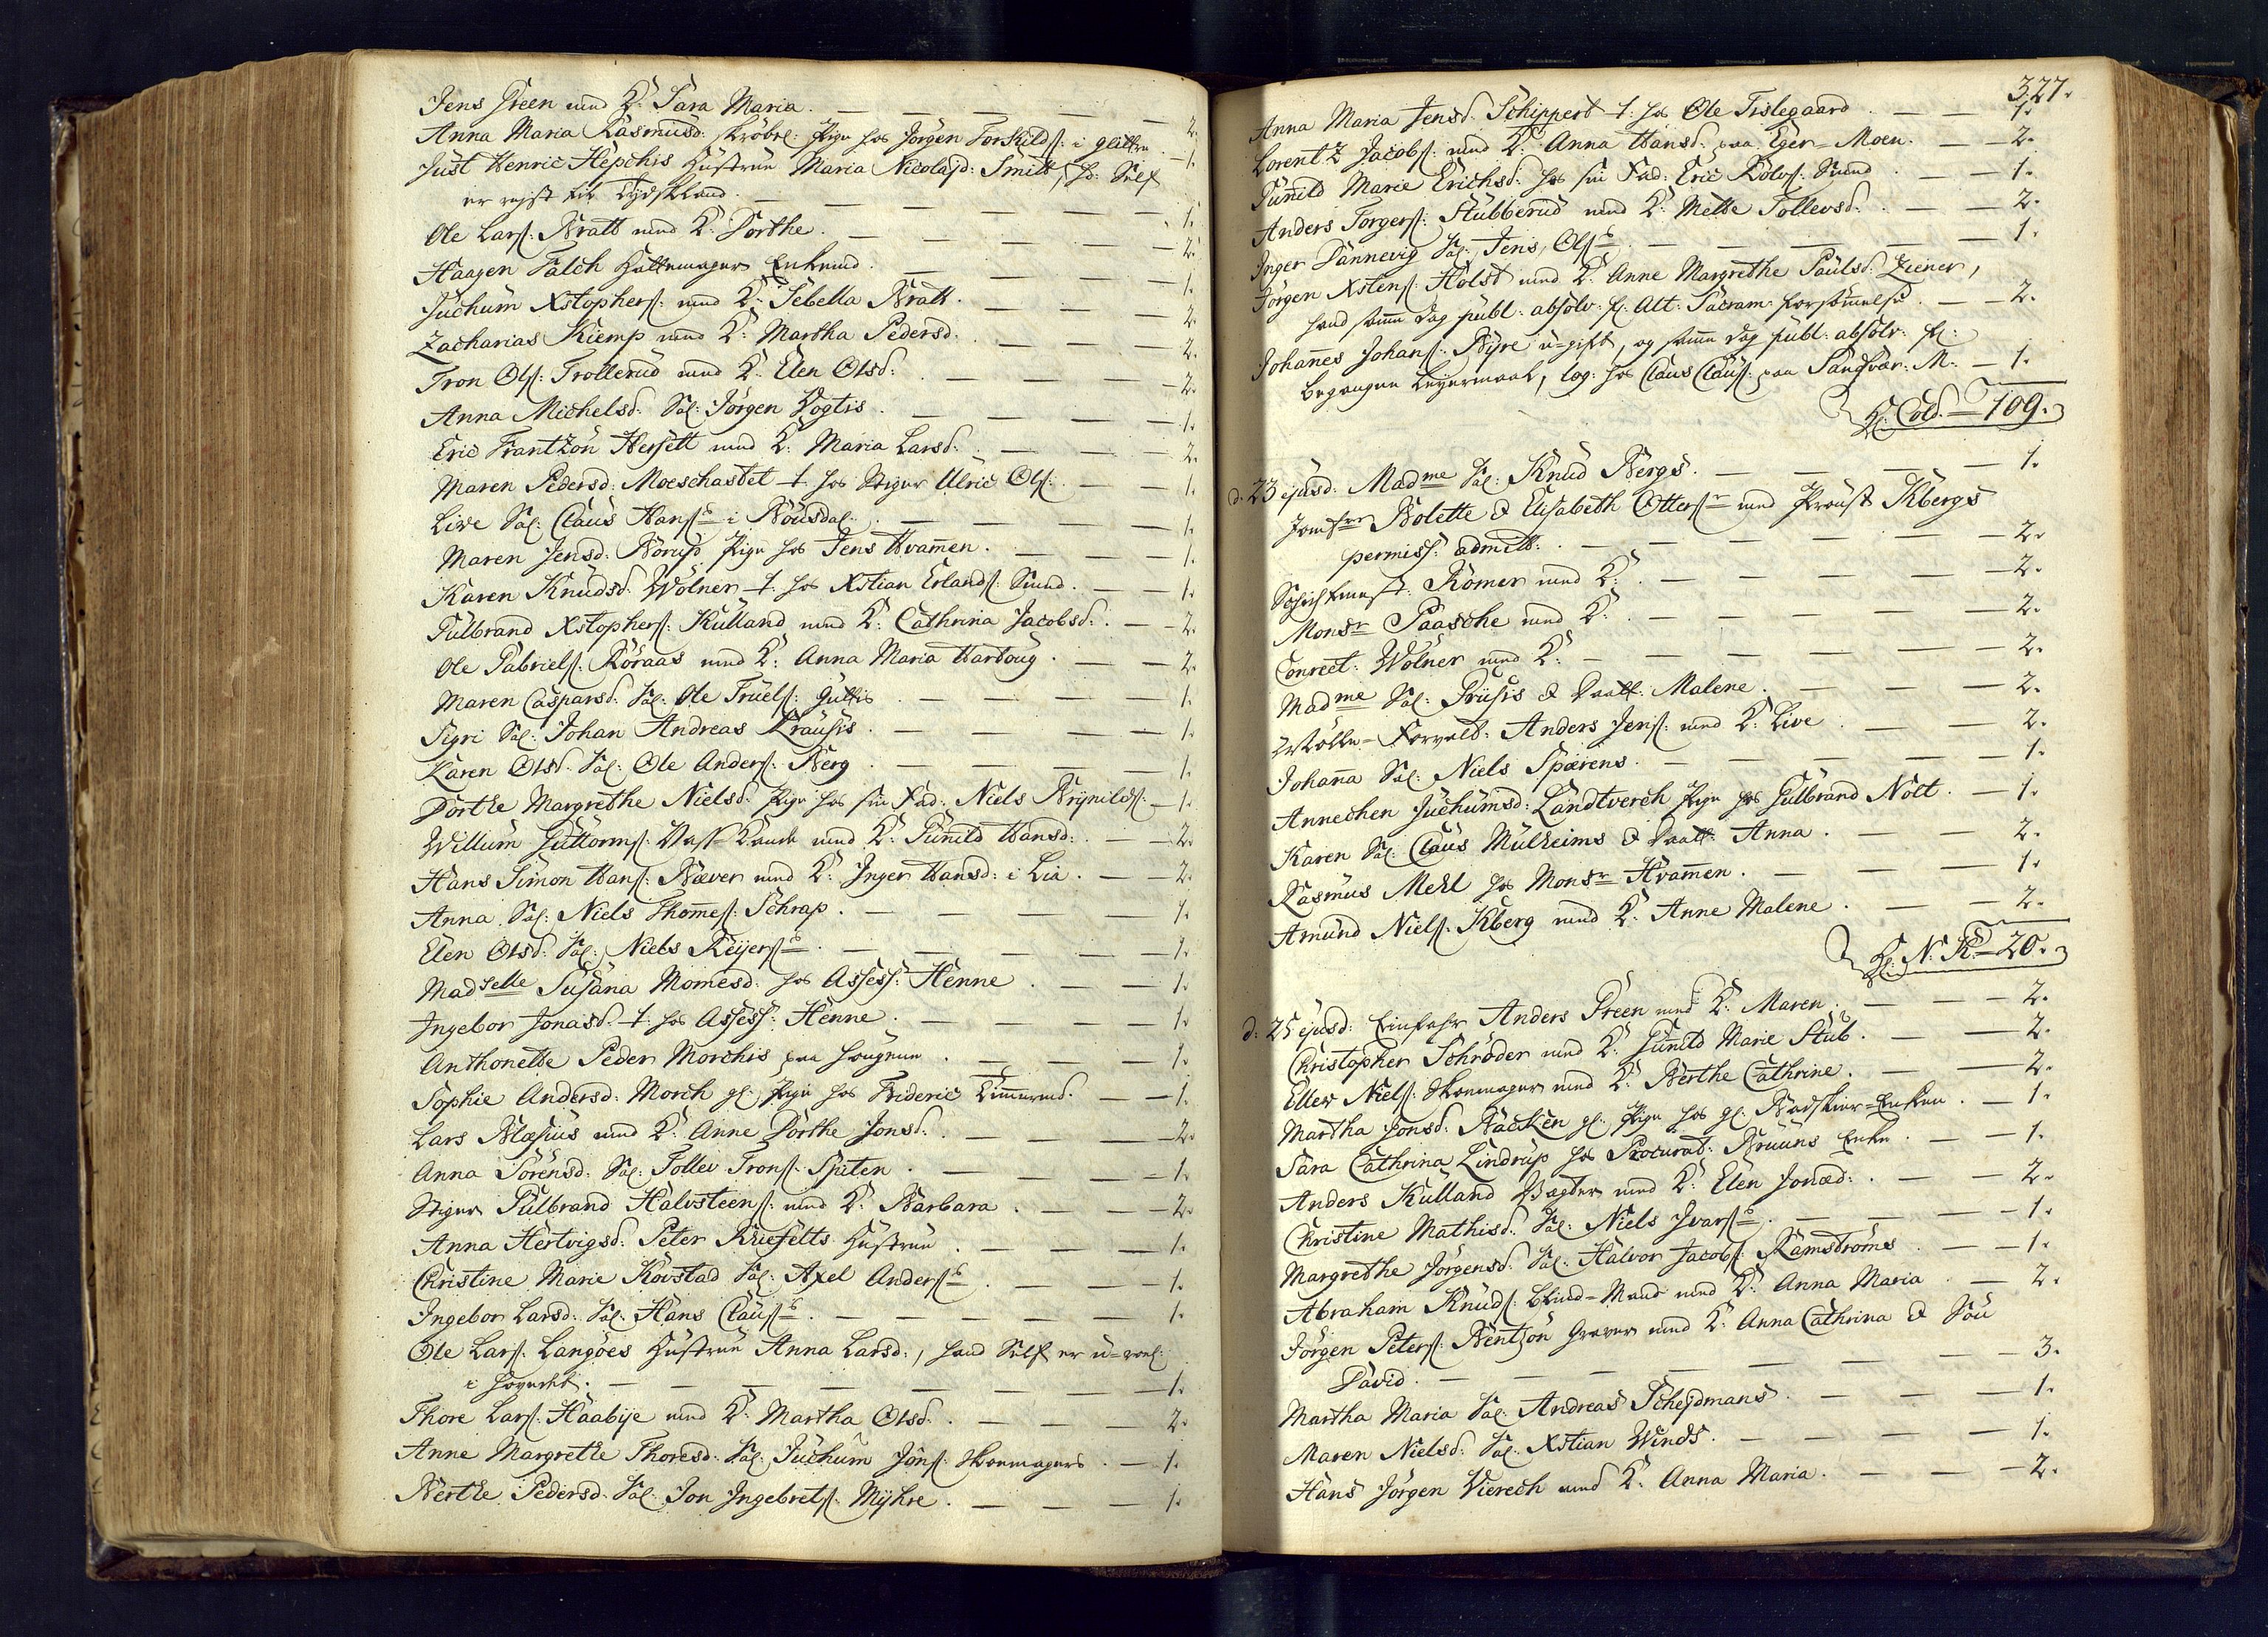 Jens Green med K: Sara Maria. — 2.
Anna Maria Rasmusd: Pige hos Jörgen Torkilds: i — 1.
Just Henric Hepchis Hustrue Maria Nicolajd: Smitt, h: Self
er rejst til Tydskland. — 1.
Ole Lars: Bratt med K: Dorthe. — 2.
Haagen Falch Hattemager Enkemd. — 1.
Juchum Xstophers: med K: Sebella Bratt. — 2.
Zacharias Kiemp med K: Martha Pedersd. — 2.
Tron Ols: Trollerud med K: Elen Olsd: — 2.
Anna Michelsd: Sal: Jörgen Vogtis. — 1.
Eric Frantzön Hersett med K: Maria Larsd: — 2.
Maren Pedersd: Moeschastet t: hos Stiger Ulric Ols: — 1.
Live Sal: Claus Hans: i — 1.
Maren Jensd: Borup Pige hos Jens Hvamen. — 1.
Karen Knudsd: Wölner t: hos Xstian Erlands: Smed. — 1.
Gulbrand Xstophers: Kulland med K: Cathrina Jacobsd: — 2.
Ole Gabriels: Röraas med K: Anna Maria Hartoug. — 2.
Maren Caspersd: Sal: Ole Truels: — 1.
Sigri Sal: Johan Andreas Krausis. — 1.
Karen Olsd: Sal: Ole Anders: Berg. — 1.
Dorthe Margrethe Nielsd: Pige hos sin Fad: Niels Brynilds: — 1.
Willum Guttorms: med K: Gunild Hansd: — 2.
Hans Simon Hans: Bæver med K: Inger Hansd: i Lia. — 2.
Anna Sal: Niels Thomes: Schrap. — 1.
Elen Olsd: Sal: Niels Reyers: — 1.
Madselle Susana Momesd: hos Assess: Henne. — 1.
Ingebor Jonasd: t: hos Assess: Henne. — 1.
Anthonette Peder Morchis paa Hougene. — 1.
Sophie Andersd: Morch gl: Pige hos Frideric — 1.
Lars Blæsius med K: Anne Dorthe Jonsd: — 2.
Anna Sörensd: Sal: Tollev Trons: — 1.
Stiger Gulbrand Halvsteens: med K: Barbara. — 2.
Anna Hertvigsd: Peter Hustrue. — 1.
Christine Marie Kovstad Sal: Axel Anders: — 1.
Ingebor Larsd: Sal: Hans Claus: — 1.
Ole Lars: Langöes Hustrue Anna Larsd:, hand Self er
i — 1.
Thore Lars: Haabye med K: Martha Olsd: — 2.
Anne Margrethe Thoresd: Sal: Juchum Jons: Skoemagers. — 1.
Berthe Pedersd: Sal: Jon Ingebrets: Myhre. — 1.
327.
Anna Maria Jensd: Schippert t: hos Ole Tislegaard — 1.
Lorentz Jacobs: med K: Anna Hansd: paa Eger-Moen. — 2.
Gunild Marie Erichsd: hos sin Fad: Eric Rolvs: Smed — 1.
Anders Torgers: Stubberud med K: Mette Tollevsd: — 2.
Inger Dannevig Sal: Jens Ols: — 1.
Jörgen Xstens: Holst med K: Anne Margrethe Paulsd: Ziener,
hand samme dag publ: absolv: f: Alt: Sacram: forsømmelse. — 2.
Johannes Johans: Byre u-gift, og samme dag publ: absolv: f:
begangen Leyermaal, log: hos Claus Claus: paa Sandsvær: M. — 1.
Hr: Cold. — 109.
d: 23 ejusd: Madme Sal: Knud Bergs. — 1.
Jomfrr Bolette & Elisabeth Otters: med Proust Kbergs
permiss: admitt: — 2.
Römer med K: — 2.
Monsr Paasche med K: — 2.
Conrect: Wölner med K: — 2.
Madme Sal: Prüsis & Daatt: Malene. — 2.
Forvalt: Anders Jens: med K: Live — 2.
Johanna Sal: Niels Spærens. — 1.
Annechen Juchumsd: Landtverch Pige hos Gulbrand Nött. — 1.
Karen Sal: Claus Mulheims & Daatt: Anna. — 2.
Rasmus Mehl hos Monsr Hvamen. — 1.
Amund Niels: Kberg med K: Anne Malene. — 2.
Hr: N: K — 20.
d: 25 ejusd: Einfahr Anders Green med K: Maren. — 2.
Christopher Schröder med K: Gunild Marie Stub. — 2.
Ellev Niels: Skoemager med K: Berthe Cathrine. — 2.
Martha Jonsd: Backen gl: Pige hos gl: Badskier-Enken. — 1.
Sara Cathrina Lindrup hos Procurat: Bruuns Enke. — 1.
Anders Kulland Vagter med K: Elen Jonæd: — 2.
Christine Mathisd: Sal: Niels Ivars: — 1.
Margrethe Jörgensd: Sal: Halvor Jacobs: Ramströms — 1.
Abraham Knuds: Blind-Mand med K: Anna Maria. — 2.
Jörgen Peters: Bentzön Graver med K: Anna Cathrina & Sön
David. — 3.
Martha Maria Sal: Andreas Schejdmans. — 1.
Maren Nielsd: Sal: Xstian Winds. — 1.
Hans Jörgen Vierech med K: Anna Maria. — 2.